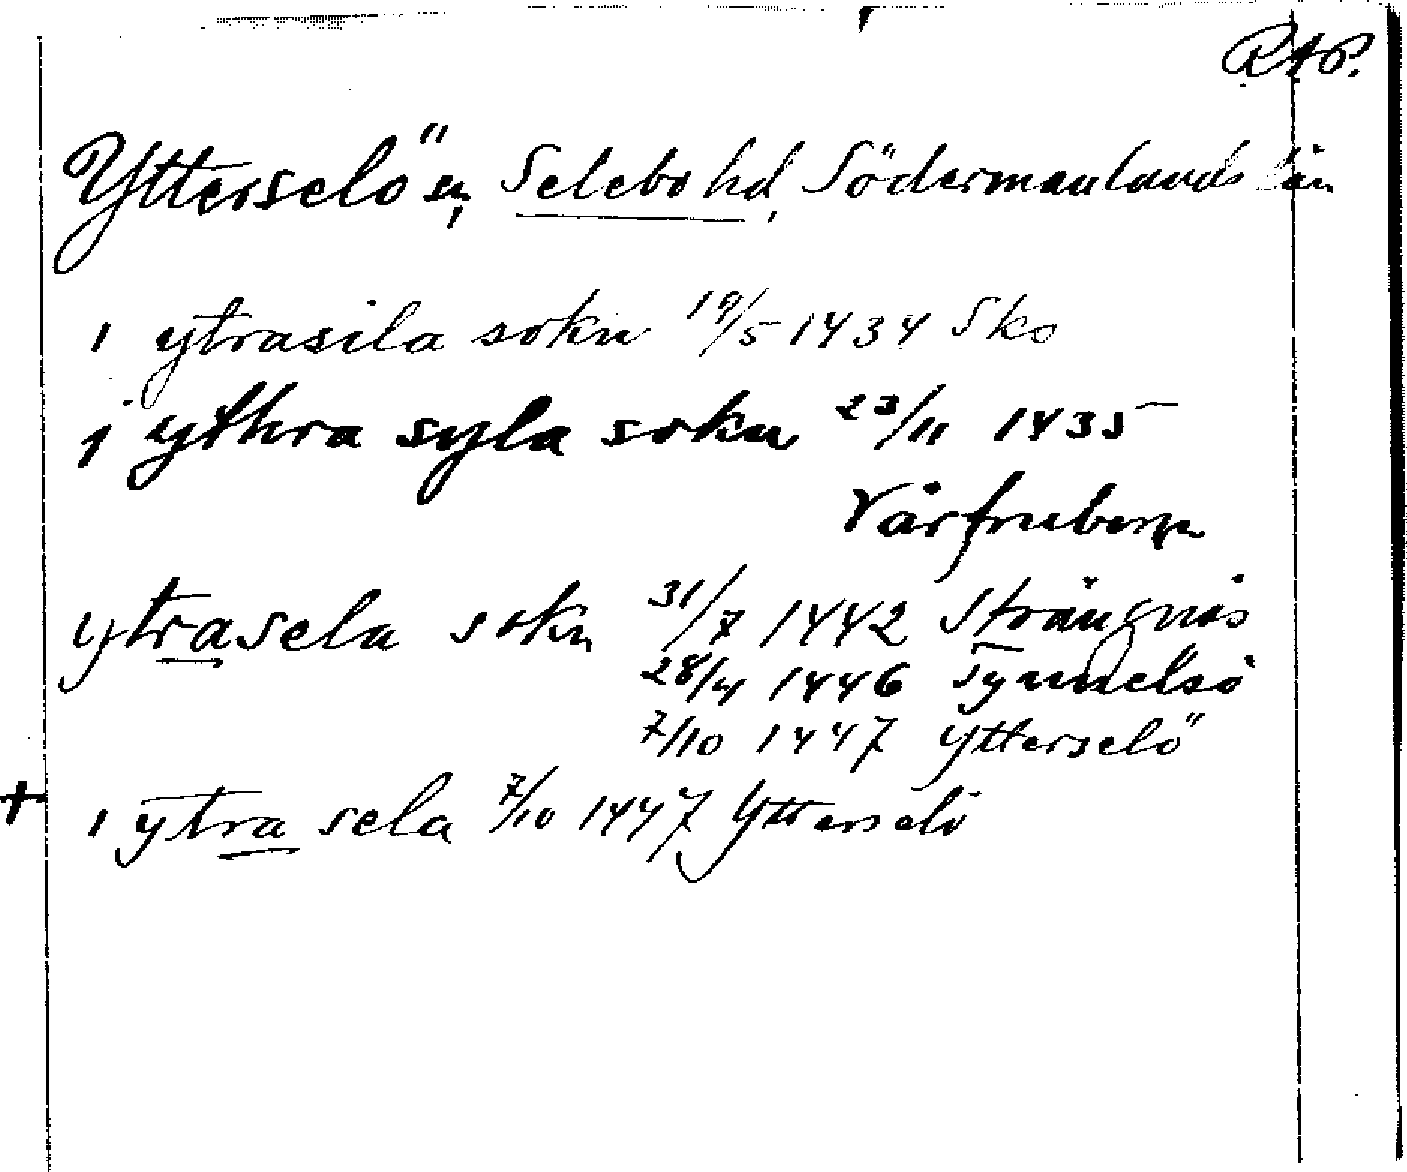 RAP.
Ytterselö sn, Selebo hd, Södermanlands län
i ytrasila sokn 19/5 1434 Sko
j ythra syla sokn 23/11 1435
Vårfruberga
ytrasela sokn 31/7 1442 Strängnäs
28/4 1446 Tynnelsö
7/10 1447 Ytterselö
+ i ytra sela 7/10 1447 Ytterselö